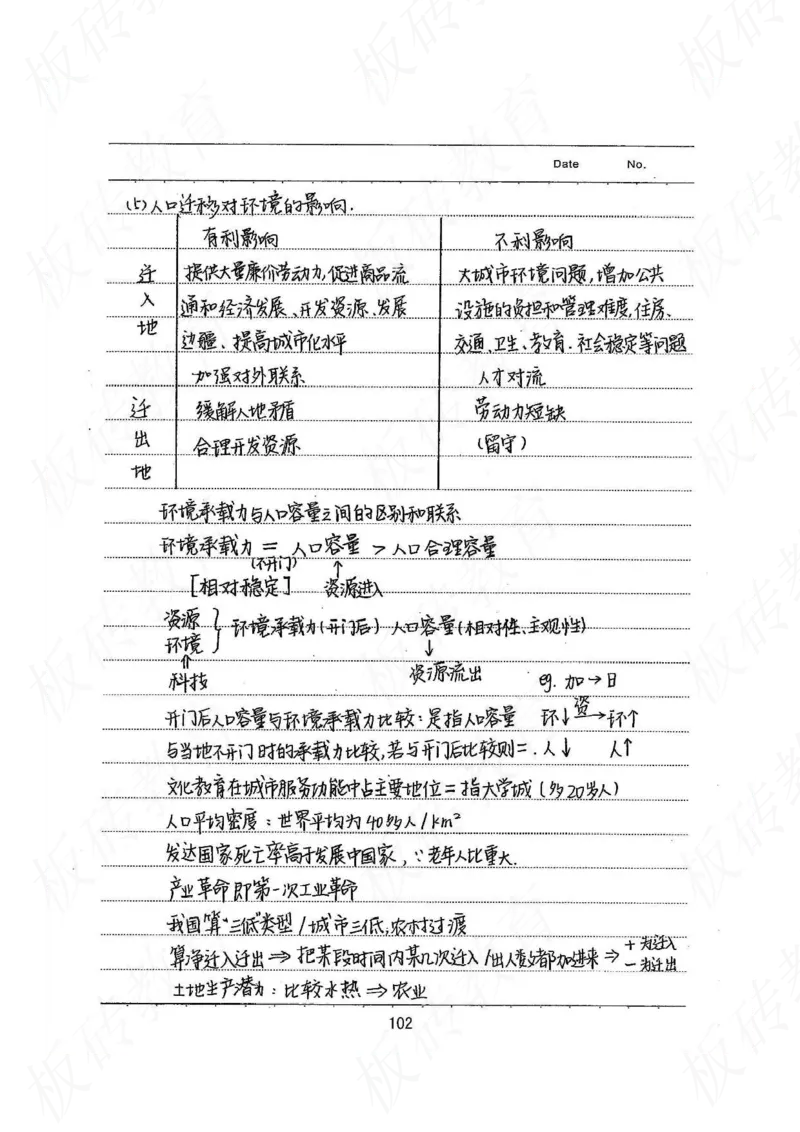 Date No.
(5)人口迁移对环境的影响.
有利影响 不利影响
迁入地
提供大量廉价劳动力,促进商品流
通和经济发展、开发资源、发展
边疆、提高城市化水平
大城市环境问题,增加公共
设施的负担和管理难度,住房、
交通、卫生、教育.社会稳定等问题
迁出地
加强对外联系
缓解人地矛盾
合理开发资源
人才对流
劳动力短缺
(留守)
环境承载力与人口容量之间的区别和联系
环境承载力 = 人口容量 > 人口合理容量
(不开门) ↑
[相对稳定] 资源进入
资源
环境
} 环境承载力(开门后) 人口容量(相对性、主观性)
⇑ ↓
科技 资源流出 eg. 加→日
开门后人口容量与环境承载力比较:是指人口容量 环↓ 资→ 环↑
与当地不开门时的承载力比较,若与开门后比较则=. 人↓ 人↑
文化教育在城市服务功能中占主要地位=指大学城(多20多岁人)
人口平均密度:世界平均为40多人/km²
发达国家死亡率高于发展中国家,∵老年人比重大.
产业革命即第一次工业革命
我国算"三低"类型/城市三低,农村过渡
算净迁入迁出⇒把某段时间内某几次迁入/出人数都加进来⇒ +为迁入
-为迁出
土地生产潜力:比较水热⇒农业
102
板砖教育